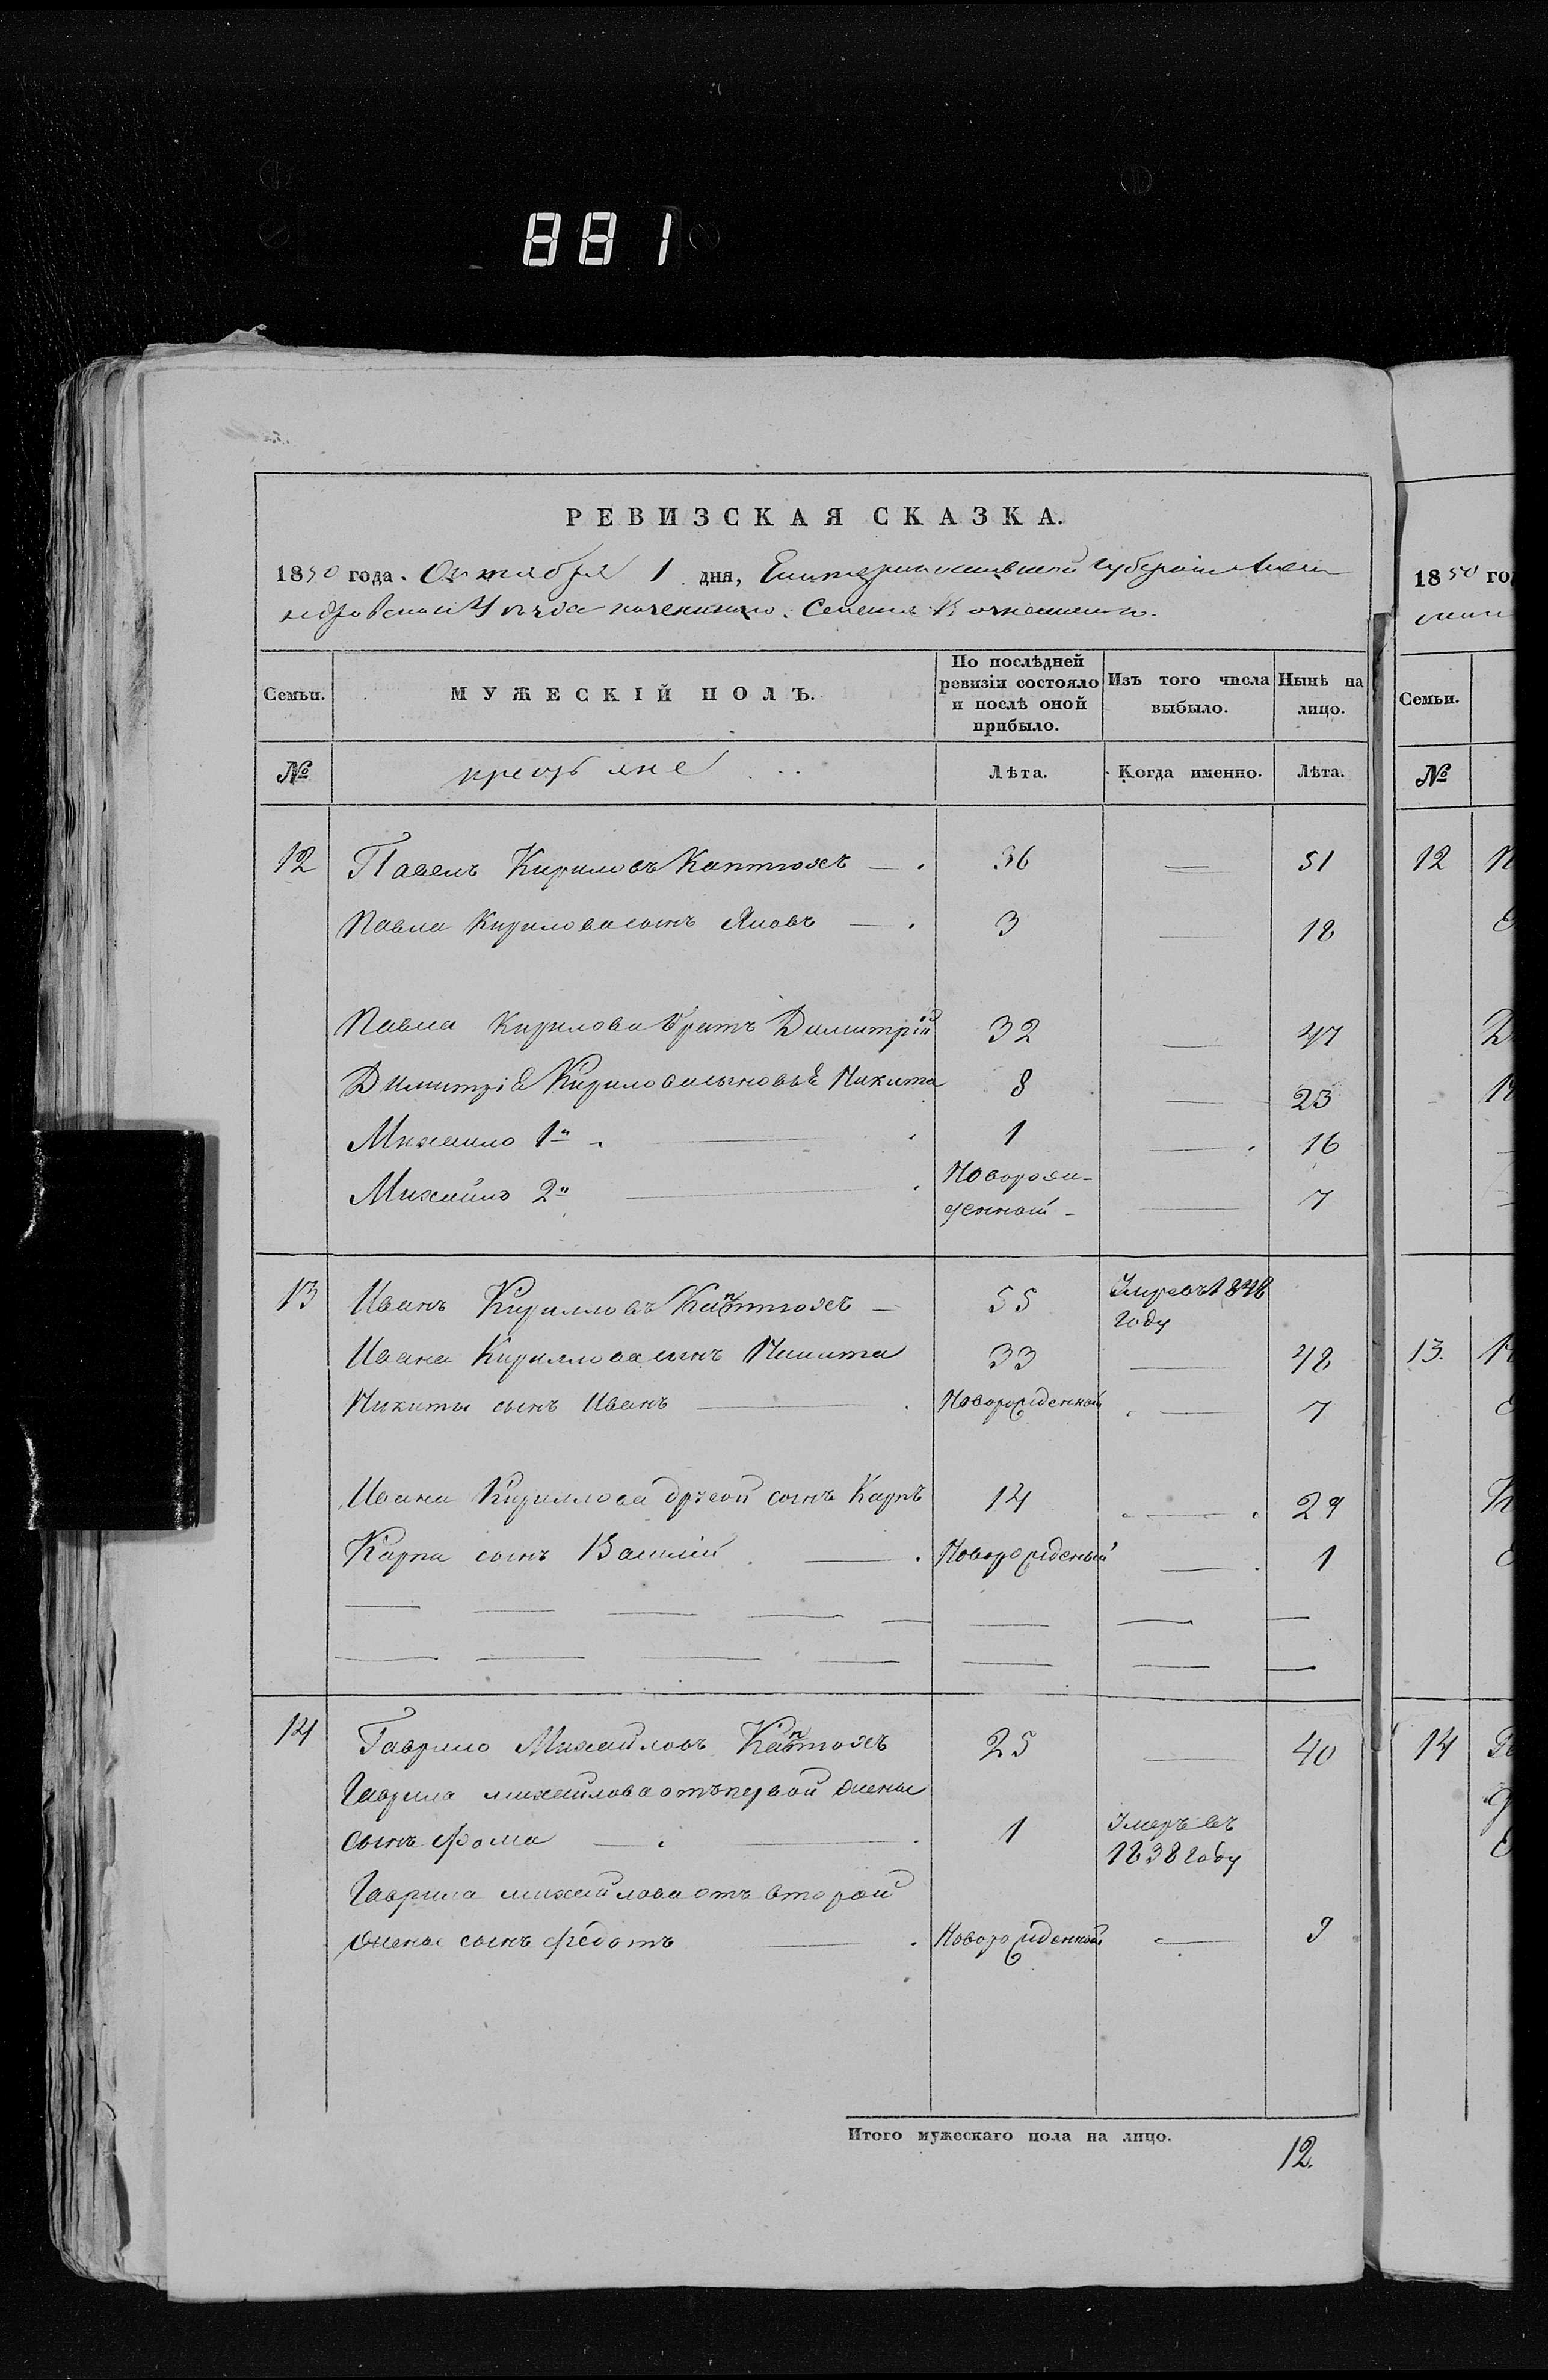 881
РЕВИЗСКАЯ СКАЗКА.
1850 года. Октября 1 дня, Екатеринославской Губерніи Алек
сандровскаго Уѣзда казеннаго Селенія
Семьи. МУЖЕСКІЙ ПОЛЪ. По послѣдней ревизіи состояло и послѣ оной прибыло. Изъ того числа выбыло. Нынѣ на лицо.
№ крестьяне Лѣта. Когда именно. Лѣта.
12 Павелъ Кириловъ Каптюхъ — . 36 — 51
Павла Кирилова сынъ Яковъ — . 3 — 18
Павла Кирилова братъ Димитрій 32 — 47
Димитрія Кирилова сыновья Никита 8 — 23
Михаило 1й . — 1 — 16
Михайло 2й — Новорож-
денной — 7
13 Иванъ Кирилловъ Каптюхъ — 55 Умре въ 1848
году
Ивана Кириллова сынъ Никита 33 — 48
Никиты сынъ Иванъ — . Новорожденной — 7
Ивана Кириллова другой сынъ Карпъ 14 — 29
Карпа сынъ Василій . — . Новорожденый — 1
14 Гаврило Михайловъ Каптюхъ 25 — 40
Гаврила михайлова отъ первой жены
сынъ Фома — . — 1 Умеръ въ
1838 году
Гаврила михайлова отъ второй
жены сынъ Федотъ — . Новорожденной — 9
Итого мужескаго пола на лицо.
12.
1850 го
Семьи.
№
12
13.
14